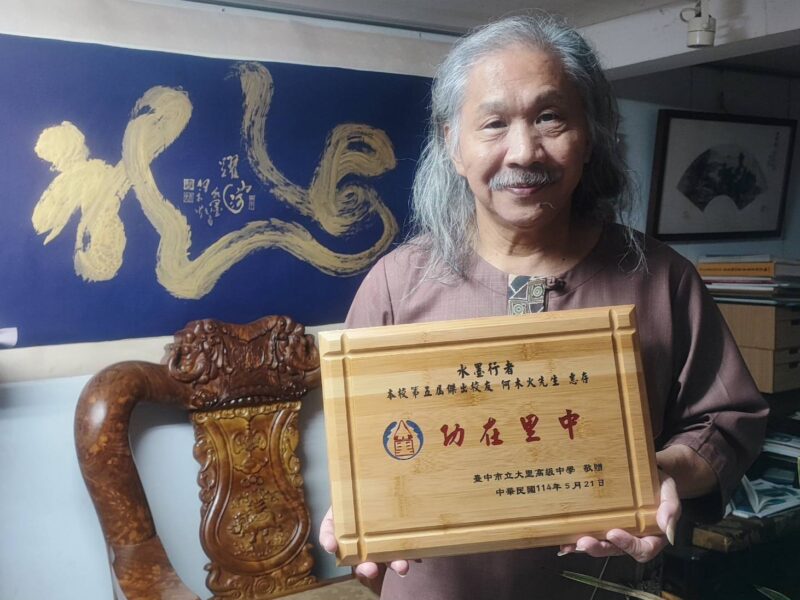 水墨行者
本校第五屆傑出校友 何木火先生 惠存
功在里中
臺中市立大里高級中學 敬贈
中華民國114年5月21日
耀